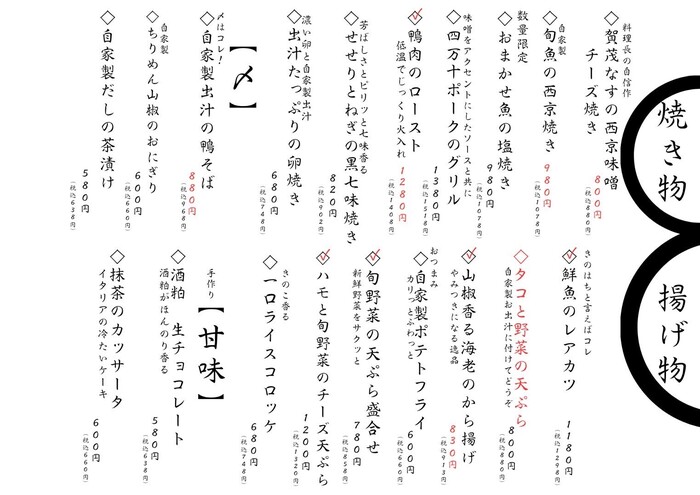 焼き物
料理長の自信作
◇賀茂なすの西京味噌
チーズ焼き
800円
(税込880円)
自家製
◇旬魚の西京焼き
980円
(税込1078円)
数量限定
◇おまかせ魚の塩焼き
980円
(税込1078円)
味噌をアクセントにしたソースと共に
◇四万十ポークのグリル
1380円
(税込1518円)
◇鴨肉のロースト
低温でじっくり火入れ
1280円
(税込1408円)
芳ばしさとピリッと七味香る
◇せせりとねぎの黒七味焼き
820円
(税込902円)
濃い卵と自家製出汁
◇出汁たっぷりの卵焼き
680円
(税込748円)
【〆】
〆はコレ!
◇自家製出汁の鴨そば
880円
(税込968円)
自家製
◇ちりめん山椒のおにぎり
600円
(税込660円)
◇自家製だしの茶漬け
580円
(税込638円)
揚げ物
きのはちと言えばコレ
◇鮮魚のレアカツ
1180円
(税込1298円)
◇タコと野菜の天ぷら
自家製お出汁に付けてどうぞ
800円
(税込880円)
◇山椒香る海老のから揚げ
やみつきになる逸品
830円
(税込913円)
おつまみ
◇自家製ポテトフライ
カリっとふわっと
600円
(税込660円)
◇旬野菜の天ぷら盛合せ
新鮮野菜をサクッと
780円
(税込858円)
◇ハモと旬野菜のチーズ天ぷら
1200円
(税込1320円)
きのこ香る
◇一口ライスコロッケ
680円
(税込748円)
【甘味】
手作り
◇酒粕 生チョコレート
酒粕がほんのり香る
580円
(税込638円)
◇抹茶のカッサータ
イタリアの冷たいケーキ
600円
(税込660円)